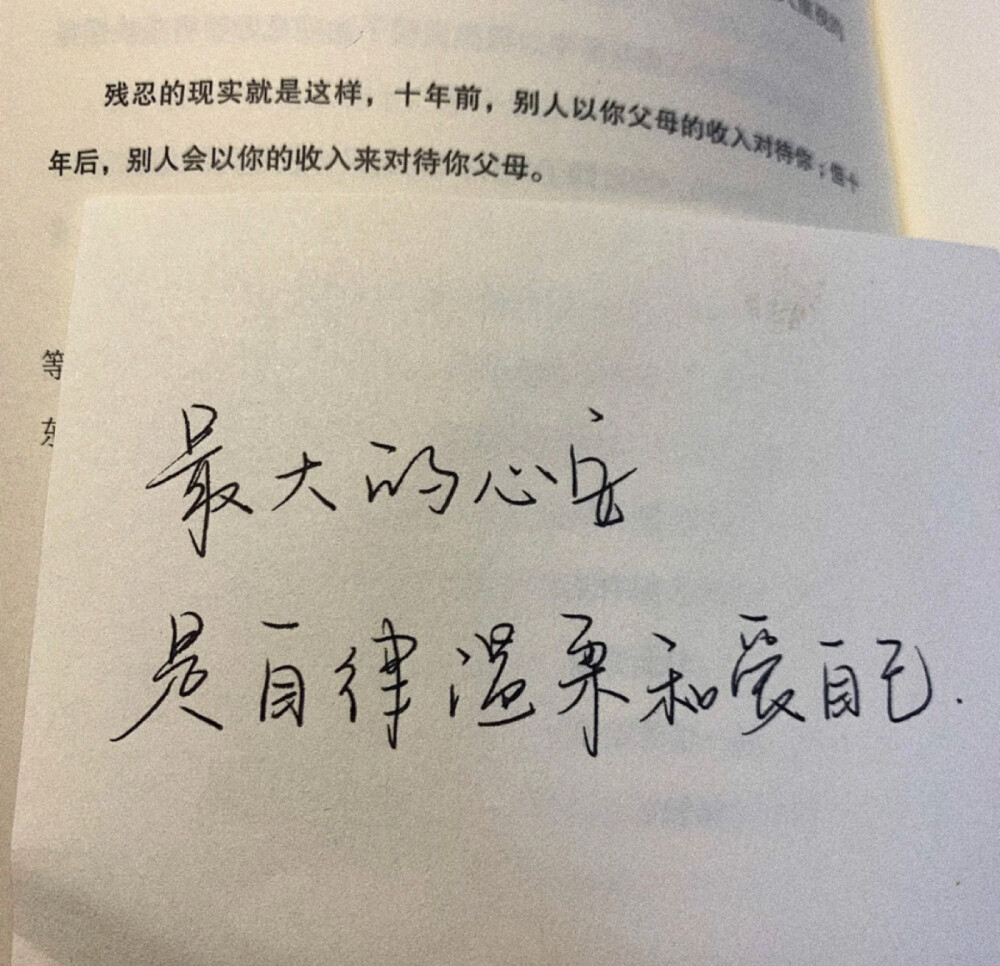 残忍的现实就是这样，十年前，别人以你父母的收入对待你；但十
年后，别人会以你的收入来对待你父母。
等
东
最大的心安
是自律温柔和爱自己.